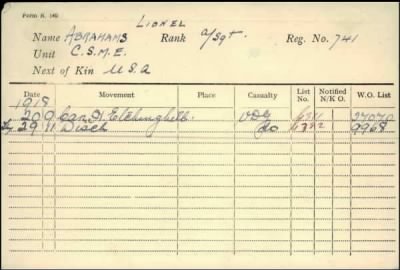 Form B. 140
LIONEL
Name ABRAHAMS Rank a/Sgt. Reg. No. 741
Unit C.S.M.E.
Next of Kin U S A
Date Movement Place Casualty List No. Notified N/K O. W.O. List
1918
20 9 Can H Etchinghill VDG
29 11 Disch do 9968